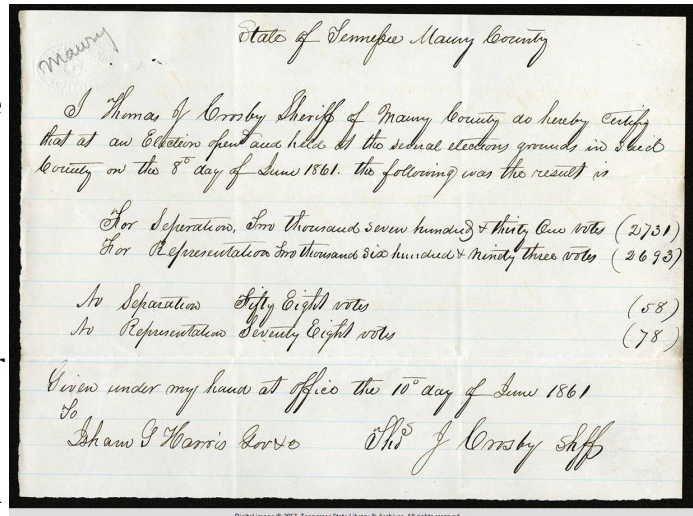 Maury
State of Tennessee Maury County
I Thomas J Crosby Sheriff of Maury County do hereby certify
that at an Election opend and held at the several elections grounds in said
County on the 8º day of June 1861. the following was the result is
For Seperation, Two thousand seven hundred & thirty One votes (2731)
For Representation Two thousand six hundred & ninety three votes (2693)
No Separation Fifty Eight votes (58)
No Representation Seventy Eight votes (78)
Given under my hand at office the 10º day of June 1861
To
Isham G Harris Gov &c Thos J Crosby Shff